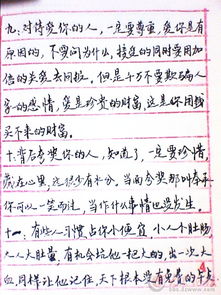 九:对待爱你的人,一定要尊重,爱你是有
原因的,不要问为什么,接受的同时要用加
倍的关爱去回报。但是千万不要欺骗人
家的感情,爱是珍贵的财富,这是你用钱
买不来的财富。
十:背后夸奖你的人,知道了,一定要珍惜,
藏在心里,这很少有水分。当面夸奖那叫奉承,
你可以一笑而过,当作什么事情也没发生。
十一:有些人习惯占你小便宜,小人一个
人人大肚量,有机会抗他一把大的,出一次大
血,同样让他记住,天下根本没有免费的午